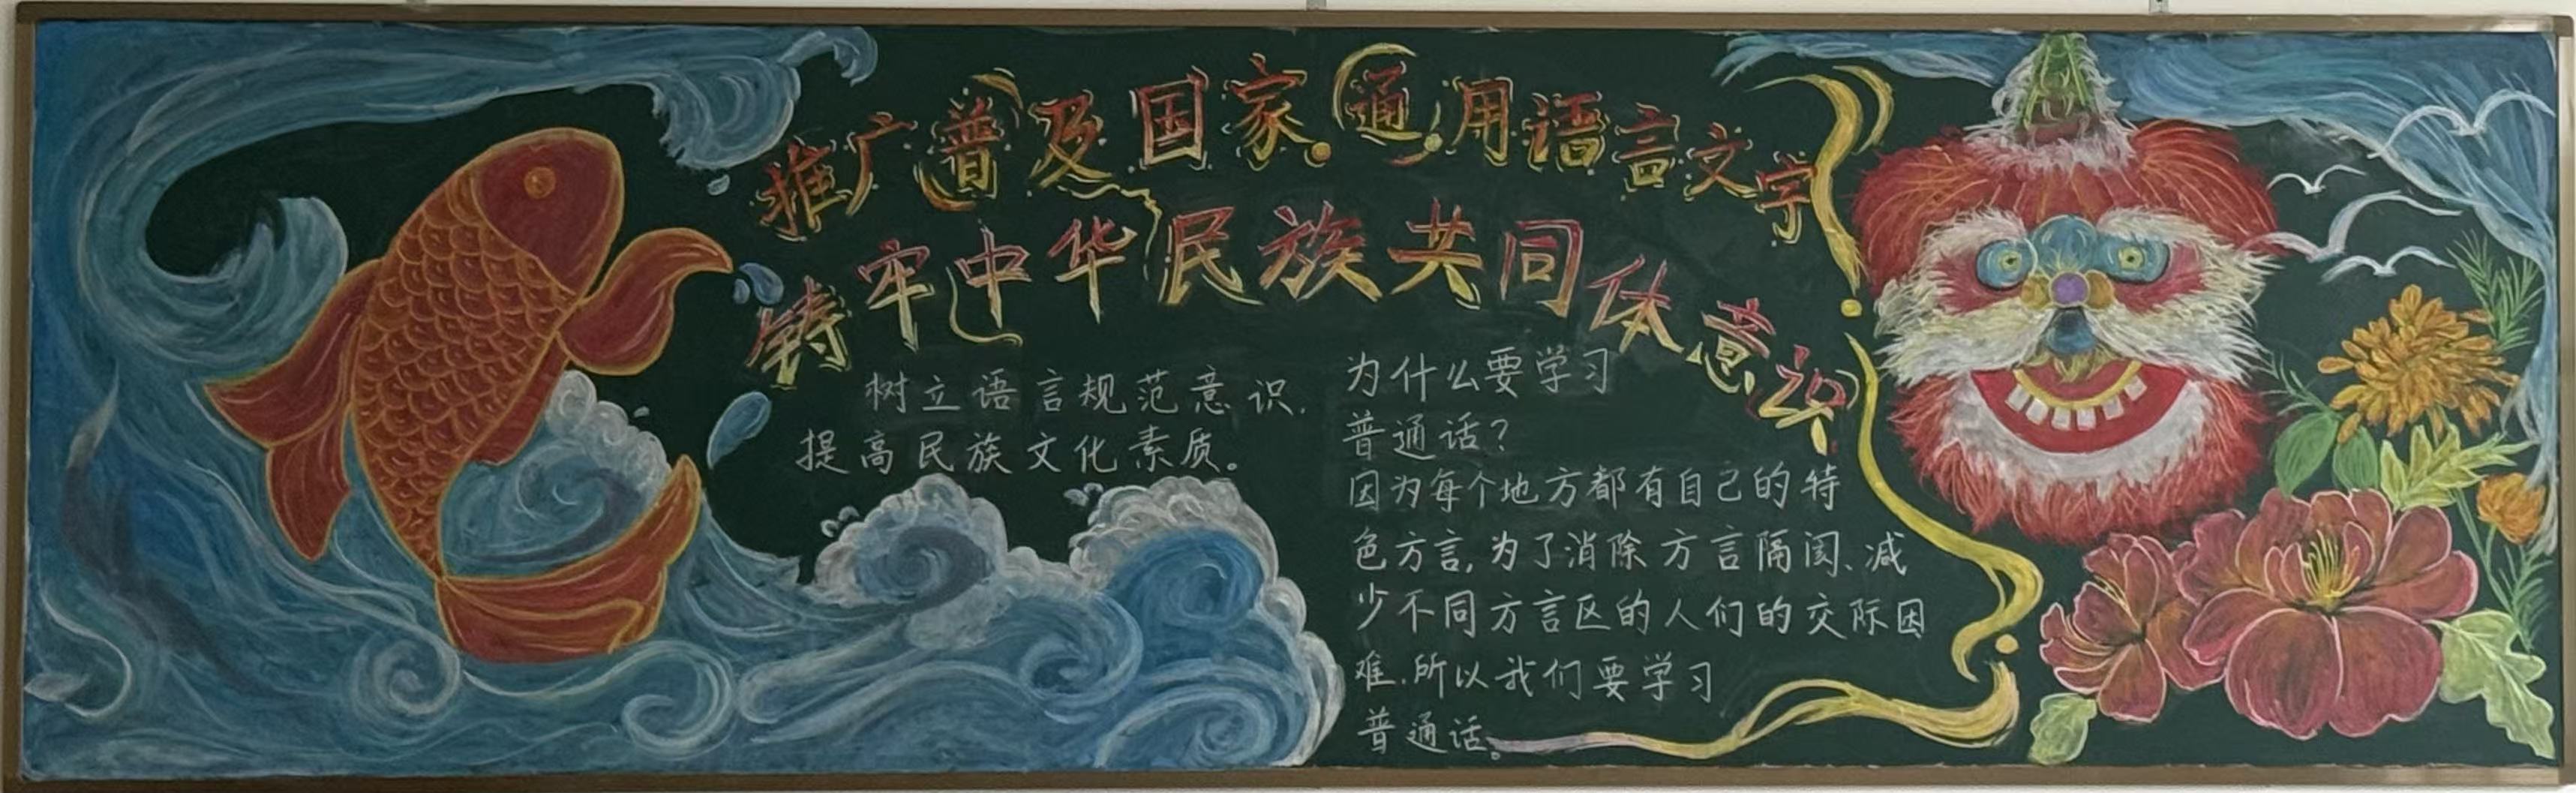 推广普及国家通用语言文字
铸牢中华民族共同体意识
树立语言规范意识,
提高民族文化素质。
为什么要学习
普通话?
因为每个地方都有自己的特
色方言,为了消除方言隔阂、减
少不同方言区的人们的交际困
难.所以我们要学习
普通话。